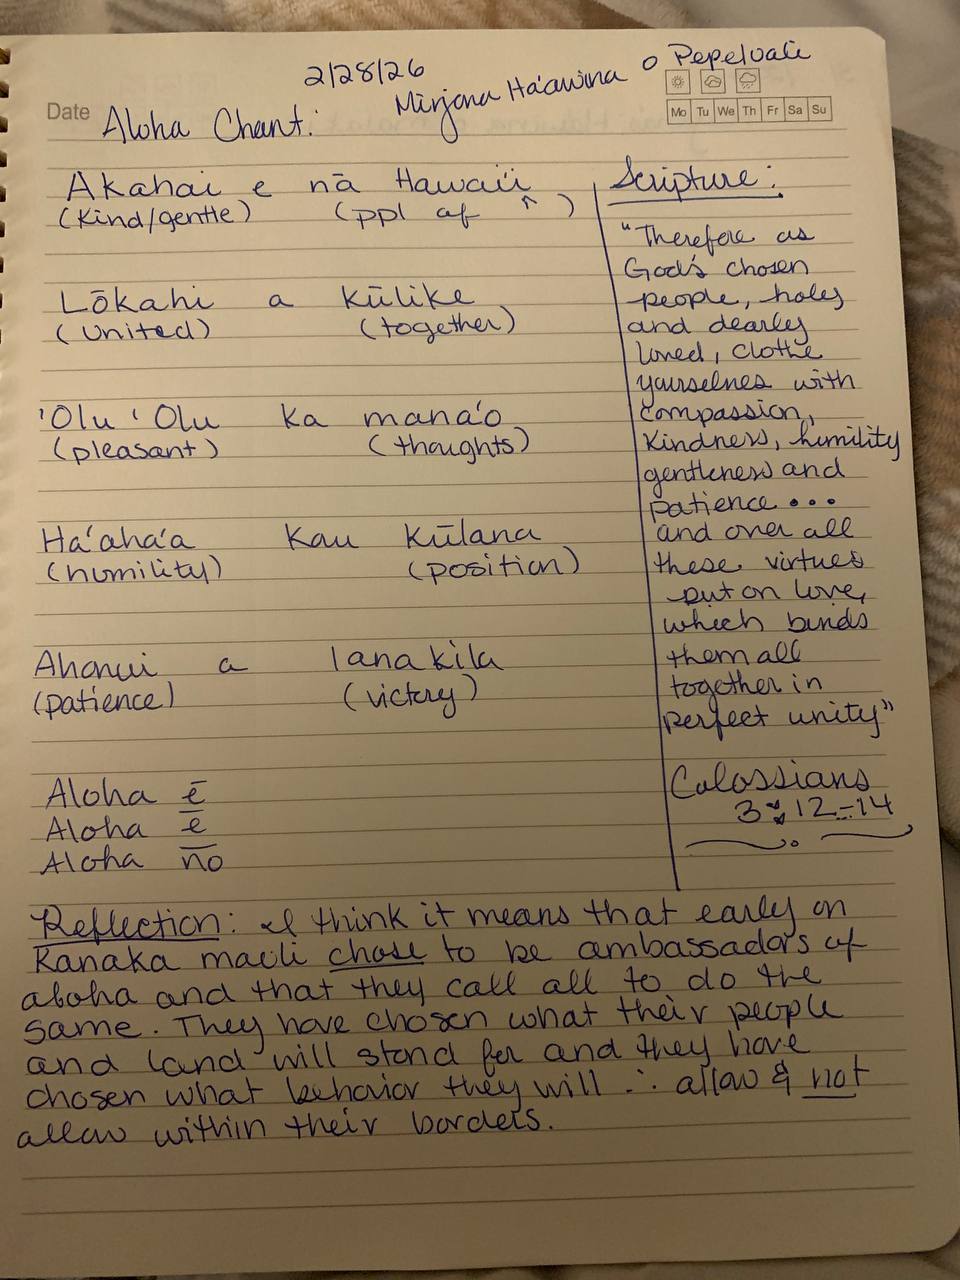 2/28/26
Mirjana Ha'awina o Pepeluali
Date
Mo Tu We Th Fr Sa Su
Aloha Chant:
Akahai e nā Hawai'i
(Kind/gentle) (ppl of ^ )
Lōkahi a Kūlike
(United) (together)
'Olu 'Olu Ka mana'o
(pleasant) (thoughts)
Ha'aha'a Kau Kūlana
(humility) (position)
Ahonui a lanakila
(patience) (victory)
Aloha ē
Aloha ē
Aloha nō
Scripture:
"Therefore as
God's chosen
people, holy
and dearly
loved, clothe
yourselves with
compassion,
Kindness, humility
gentleness and
patience...
and over all
these virtues
put on love,
which binds
them all
together in
perfect unity"
Colossians
3:12-14
Reflection: I think it means that early on
Kanaka maoli chose to be ambassadors of
aloha and that they call all to do the
same. They have chosen what their people
and land will stand for and they have
chosen what behavior they will ∴ allow & not
allow within their borders.